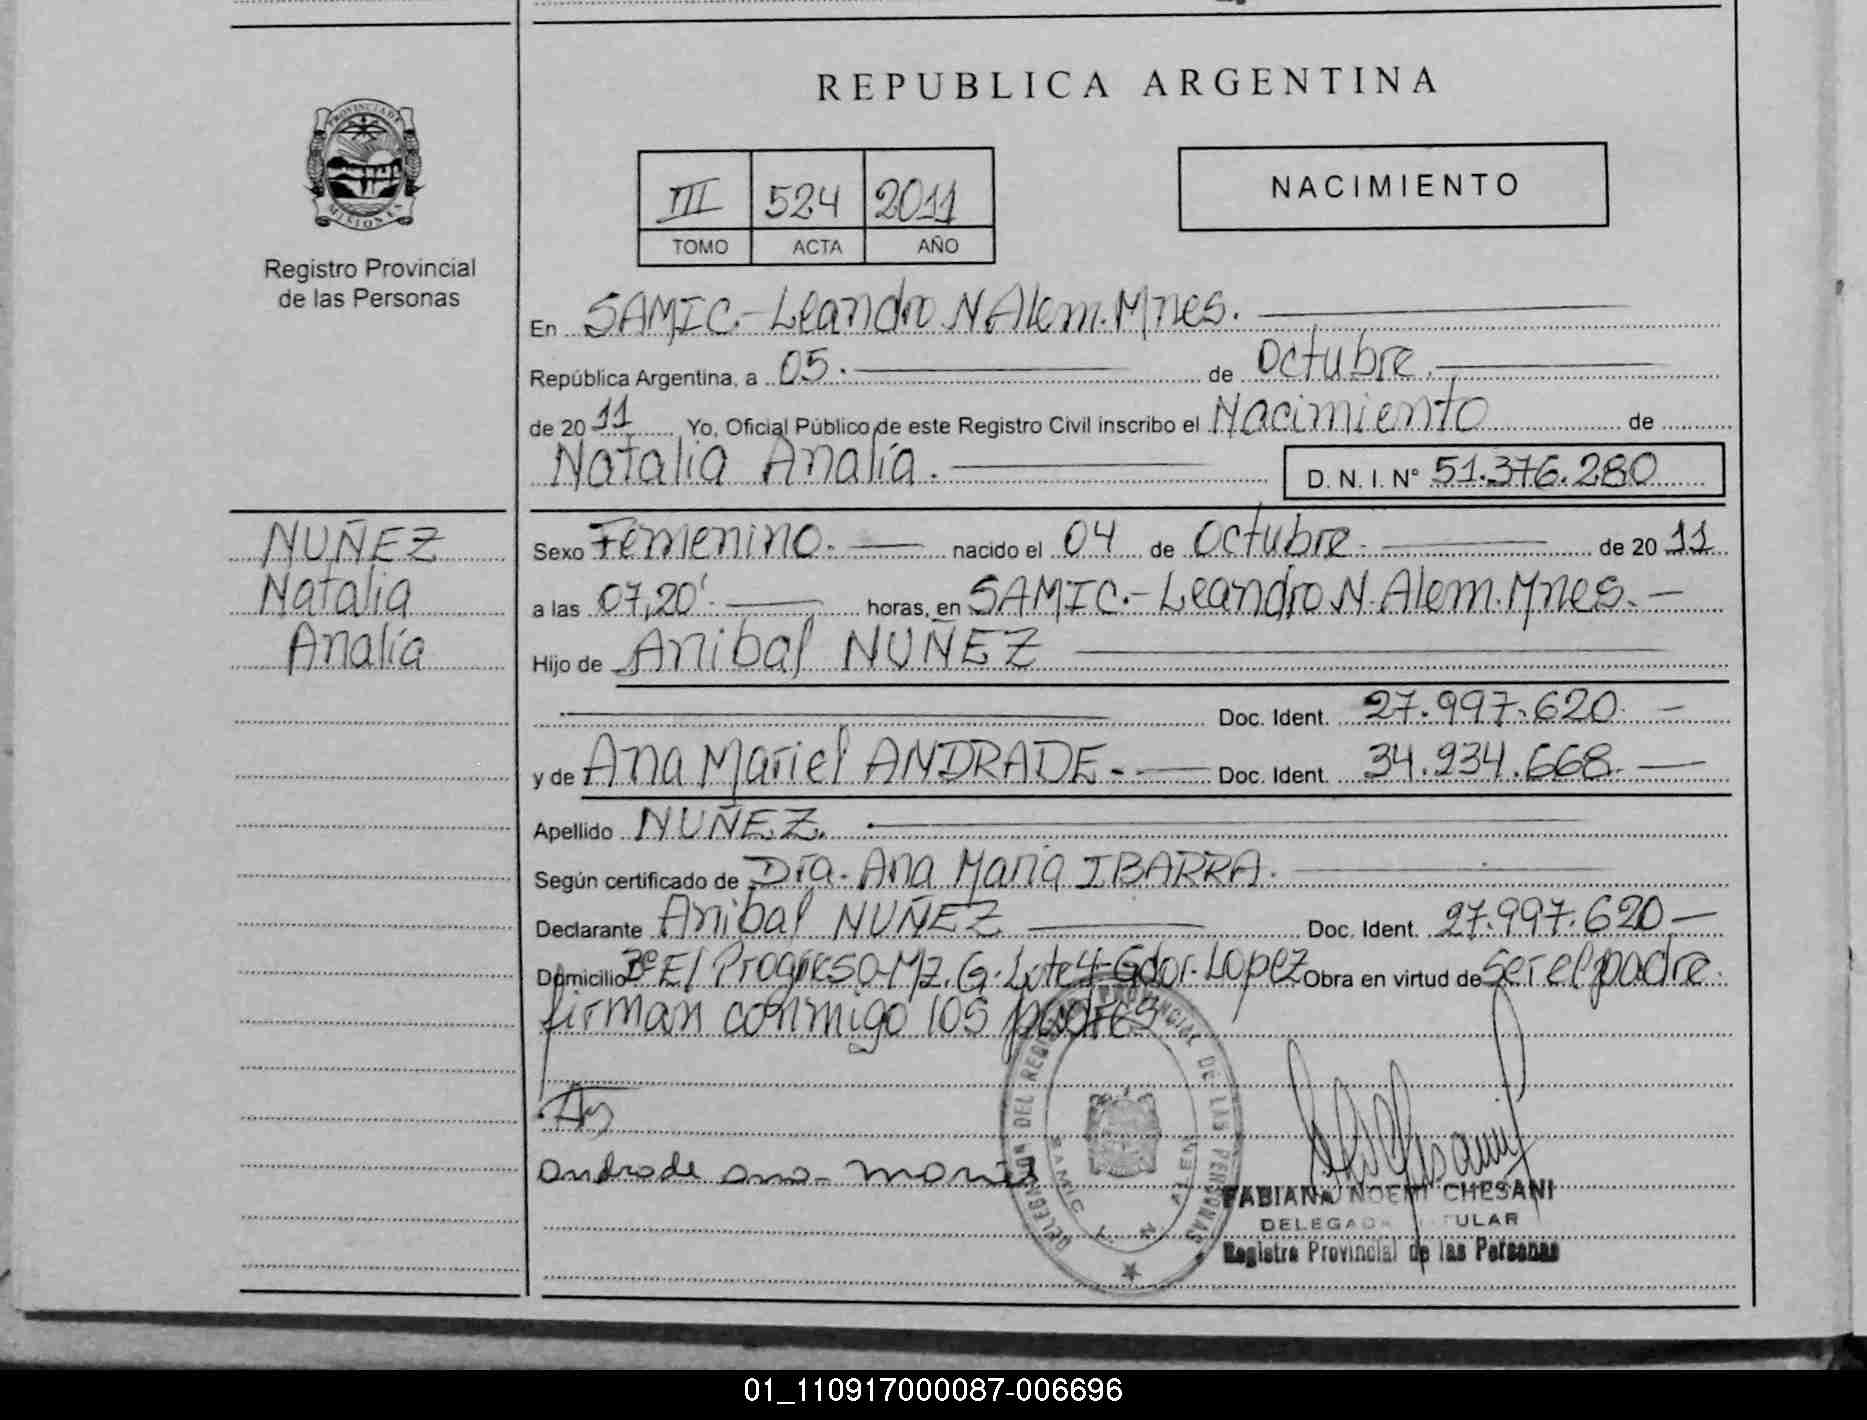 REPUBLICA ARGENTINA
PROVINCIA DE MISIONES
Registro Provincial
de las Personas
III 524 2011
TOMO ACTA AÑO
NACIMIENTO
En SAMIC.-Leandro N Alem. Mnes.
República Argentina, a 05. de Octubre.
de 2011 Yo, Oficial Público de este Registro Civil inscribo el Nacimiento de
Natalia Analía. D. N. I. Nº 51.376.280
NUÑEZ
Natalia
Analía
Sexo Femenino. nacido el 04 de Octubre de 2011
a las 07,20' horas, en SAMIC.-Leandro N. Alem. Mnes. -
Hijo de Anibal NUÑEZ
Doc. Ident. 27.997.620 -
y de Ana Mariel ANDRADE.- Doc. Ident. 34.934.668. -
Apellido NUÑEZ.
Según certificado de Dra. Ana Maria IBARRA.
Declarante Anibal NUÑEZ Doc. Ident. 27.997.620 -
Domicilio Bº El Progreso-Mz. G. Lote 4-Gdor. Lopez Obra en virtud de ser el padre.
firman conmigo los padres
andrade ana mariel
DELEGACION DEL REGISTRO PROVINCIAL DE LAS PERSONAS
SAMIC L. N. ALEM
FABIANA NOEMI CHESANI
DELEGADA TITULAR
Registro Provincial de las Personas
01_110917000087-006696